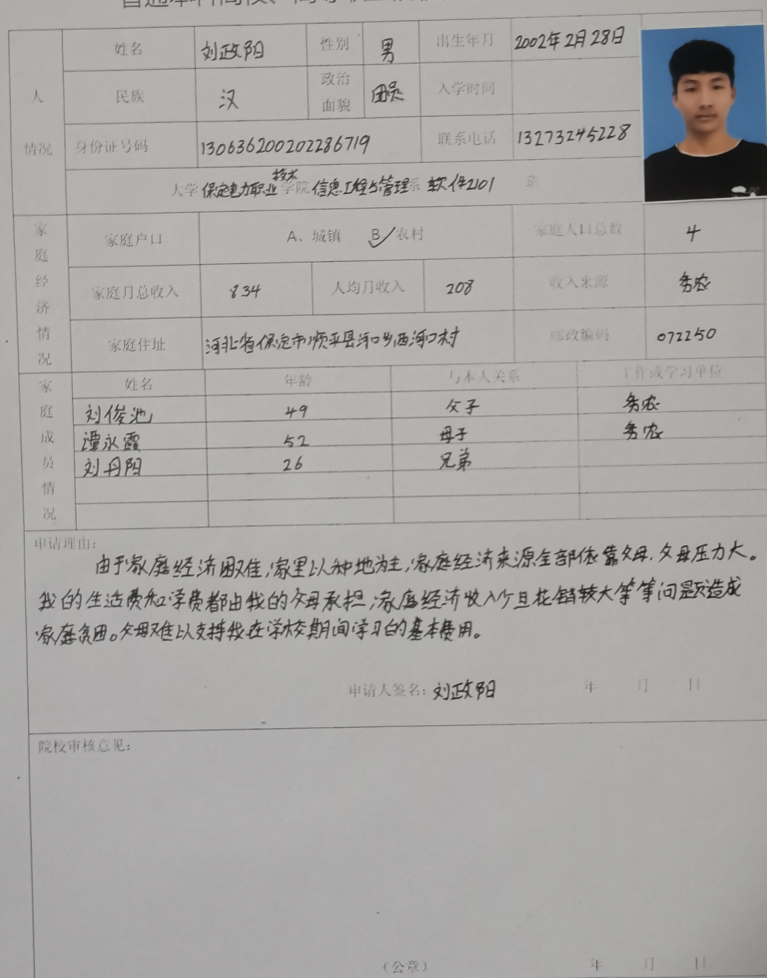 姓名 刘政阳 性别 男 出生年月 2002年2月28日
民族 汉 政治面貌 团员 入学时间
人
情况
身份证号码 130636200202286719 联系电话 13273245228
大学 保定电力职业技术 学院 信息工程与管理 系 软件2101 班
家庭经济情况
家庭户口 A、城镇 B✓农村 家庭人口总数 4
家庭月总收入 834 人均月收入 208 收入来源 务农
家庭住址 河北省保定市顺平县河口乡西河口村 邮政编码 072250
家庭成员情况
姓名 年龄 与本人关系 工作或学习单位
刘俊池 49 父子 务农
谭永霞 52 母子 务农
刘丹阳 26 兄弟
申请理由:
由于家庭经济困难,家里以种地为主,家庭经济来源全部依靠父母.父母压力大。
我的生活费和学费都由我的父母承担,家庭经济收入少且花销较大等等问题造成
家庭贫困。父母难以支持我在学校期间学习的基本费用。
申请人签名: 刘政阳 年 月 日
院校审核意见:
(公章) 年 月 日